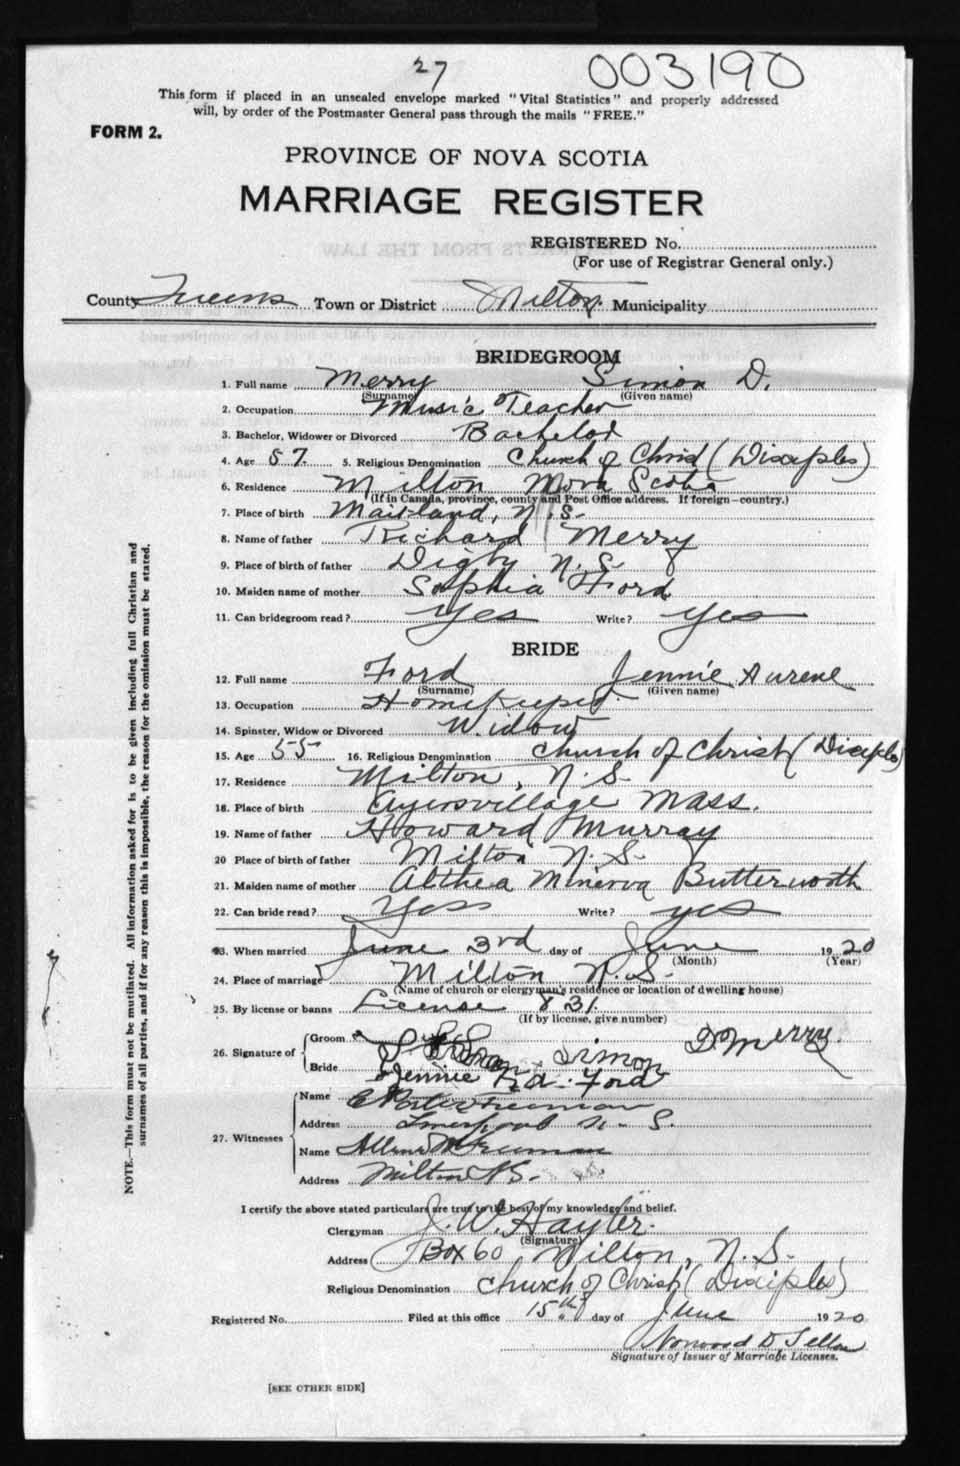 27 003190
This form if placed in an unsealed envelope marked "Vital Statistics" and properly addressed
will, by order of the Postmaster General pass through the mails "FREE."
FORM 2.
PROVINCE OF NOVA SCOTIA
MARRIAGE REGISTER
REGISTERED No.
(For use of Registrar General only.)
County Queens Town or District Milton Municipality
BRIDEGROOM
1. Full name Merry Simon D.
(Surname) (Given name)
2. Occupation Music Teacher
3. Bachelor, Widower or Divorced Bachelor
4. Age 57 5. Religious Denomination Church of Christ (Disciples)
6. Residence Milton Nova Scotia
(If in Canada, province, county and Post Office address. If foreign—country.)
7. Place of birth Maitland, N.S.
8. Name of father Richard Merry
9. Place of birth of father Digby N.S.
10. Maiden name of mother Sophia Ford
11. Can bridegroom read? Yes Write? Yes
BRIDE
12. Full name Ford Jennie Aurene
(Surname) (Given name)
13. Occupation Homekeeper
14. Spinster, Widow or Divorced Widow
15. Age 55 16. Religious Denomination Church of Christ (Disciples)
17. Residence Milton, N.S.
18. Place of birth Ayersvillage Mass.
19. Name of father Howard Murray
20 Place of birth of father Milton N.S.
21. Maiden name of mother Althea Minerva Butterworth
22. Can bride read? Yess Write? yes
23. When married June 3rd day of June 1920
(Month) (Year)
24. Place of marriage Milton N.S.
(Name of church or clergyman's residence or location of dwelling house)
25. By license or banns License 831
(If by license, give number)
26. Signature of Groom Simon D Merry.
Bride Jennie Ford
27. Witnesses Name Freeman
Address Liverpool N.S.
Name Freeman
Address Milton N.S.
I certify the above stated particulars are true to the best of my knowledge and belief.
Clergyman J. W. Hayter.
(Signature)
Address Box 60 Milton, N.S.
Religious Denomination Church of Christ (Disciples)
Registered No. Filed at this office 15th day of June 1920
Norwood D
Signature of Issuer of Marriage Licenses.
[SEE OTHER SIDE]
NOTE.—This form must not be mutilated. All information asked for is to be given including full Christian and
surnames of all parties, and if for any reason this is impossible, the reason for the omission must be stated.